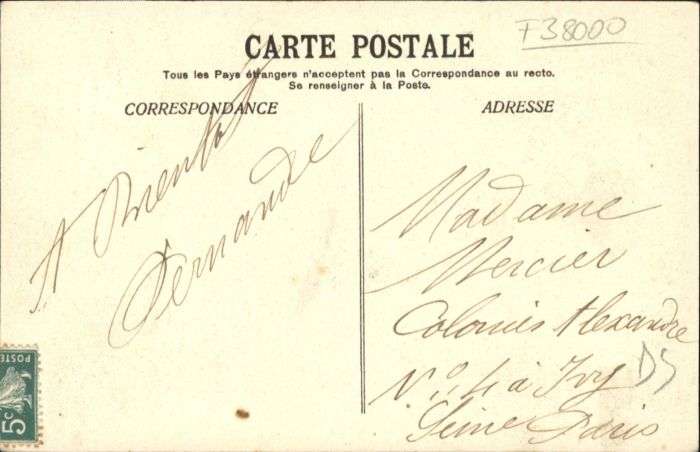 F38000
CARTE POSTALE
Tous les Pays étrangers n'acceptent pas la Correspondance au recto.
Se renseigner à la Poste.
CORRESPONDANCE
A Bientôt
Fernande
ADRESSE
Madame
Mercier
Colonies Alexandre
N° 4 à Ivry
Seine Paris
DS
POSTE
5c